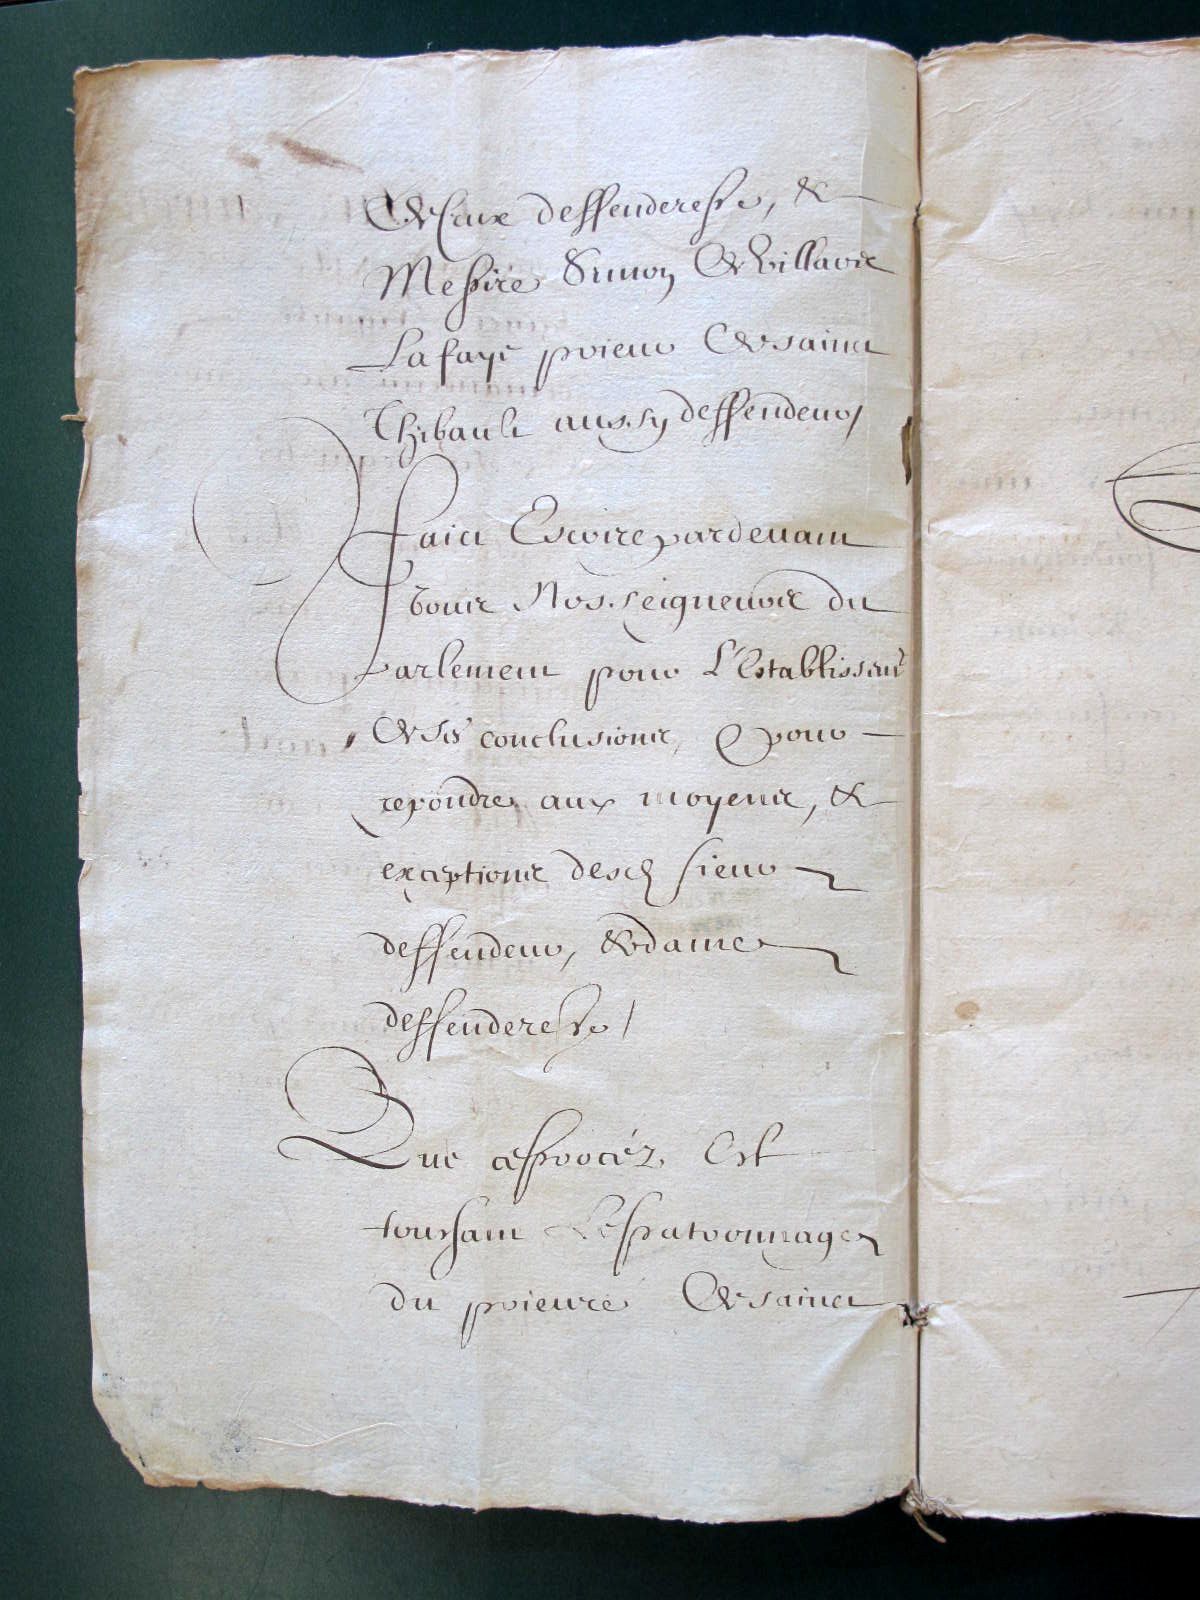 de ceux deffenderesse, &
Messire Simon de Villars
Lafaye prieur de sainct
Thibault aussy deffendeur/
Faict Escrire pardevant
vous Nosseigneurs du
Parlement pour L'Establissemt
de ses conclusions, Et pour
repondre aux moyens, &
exceptions desd sieur
deffendeur, & dame
deffenderesse/
Que ce procéz Est
touchant Le patronnage
du prieuré de sainct